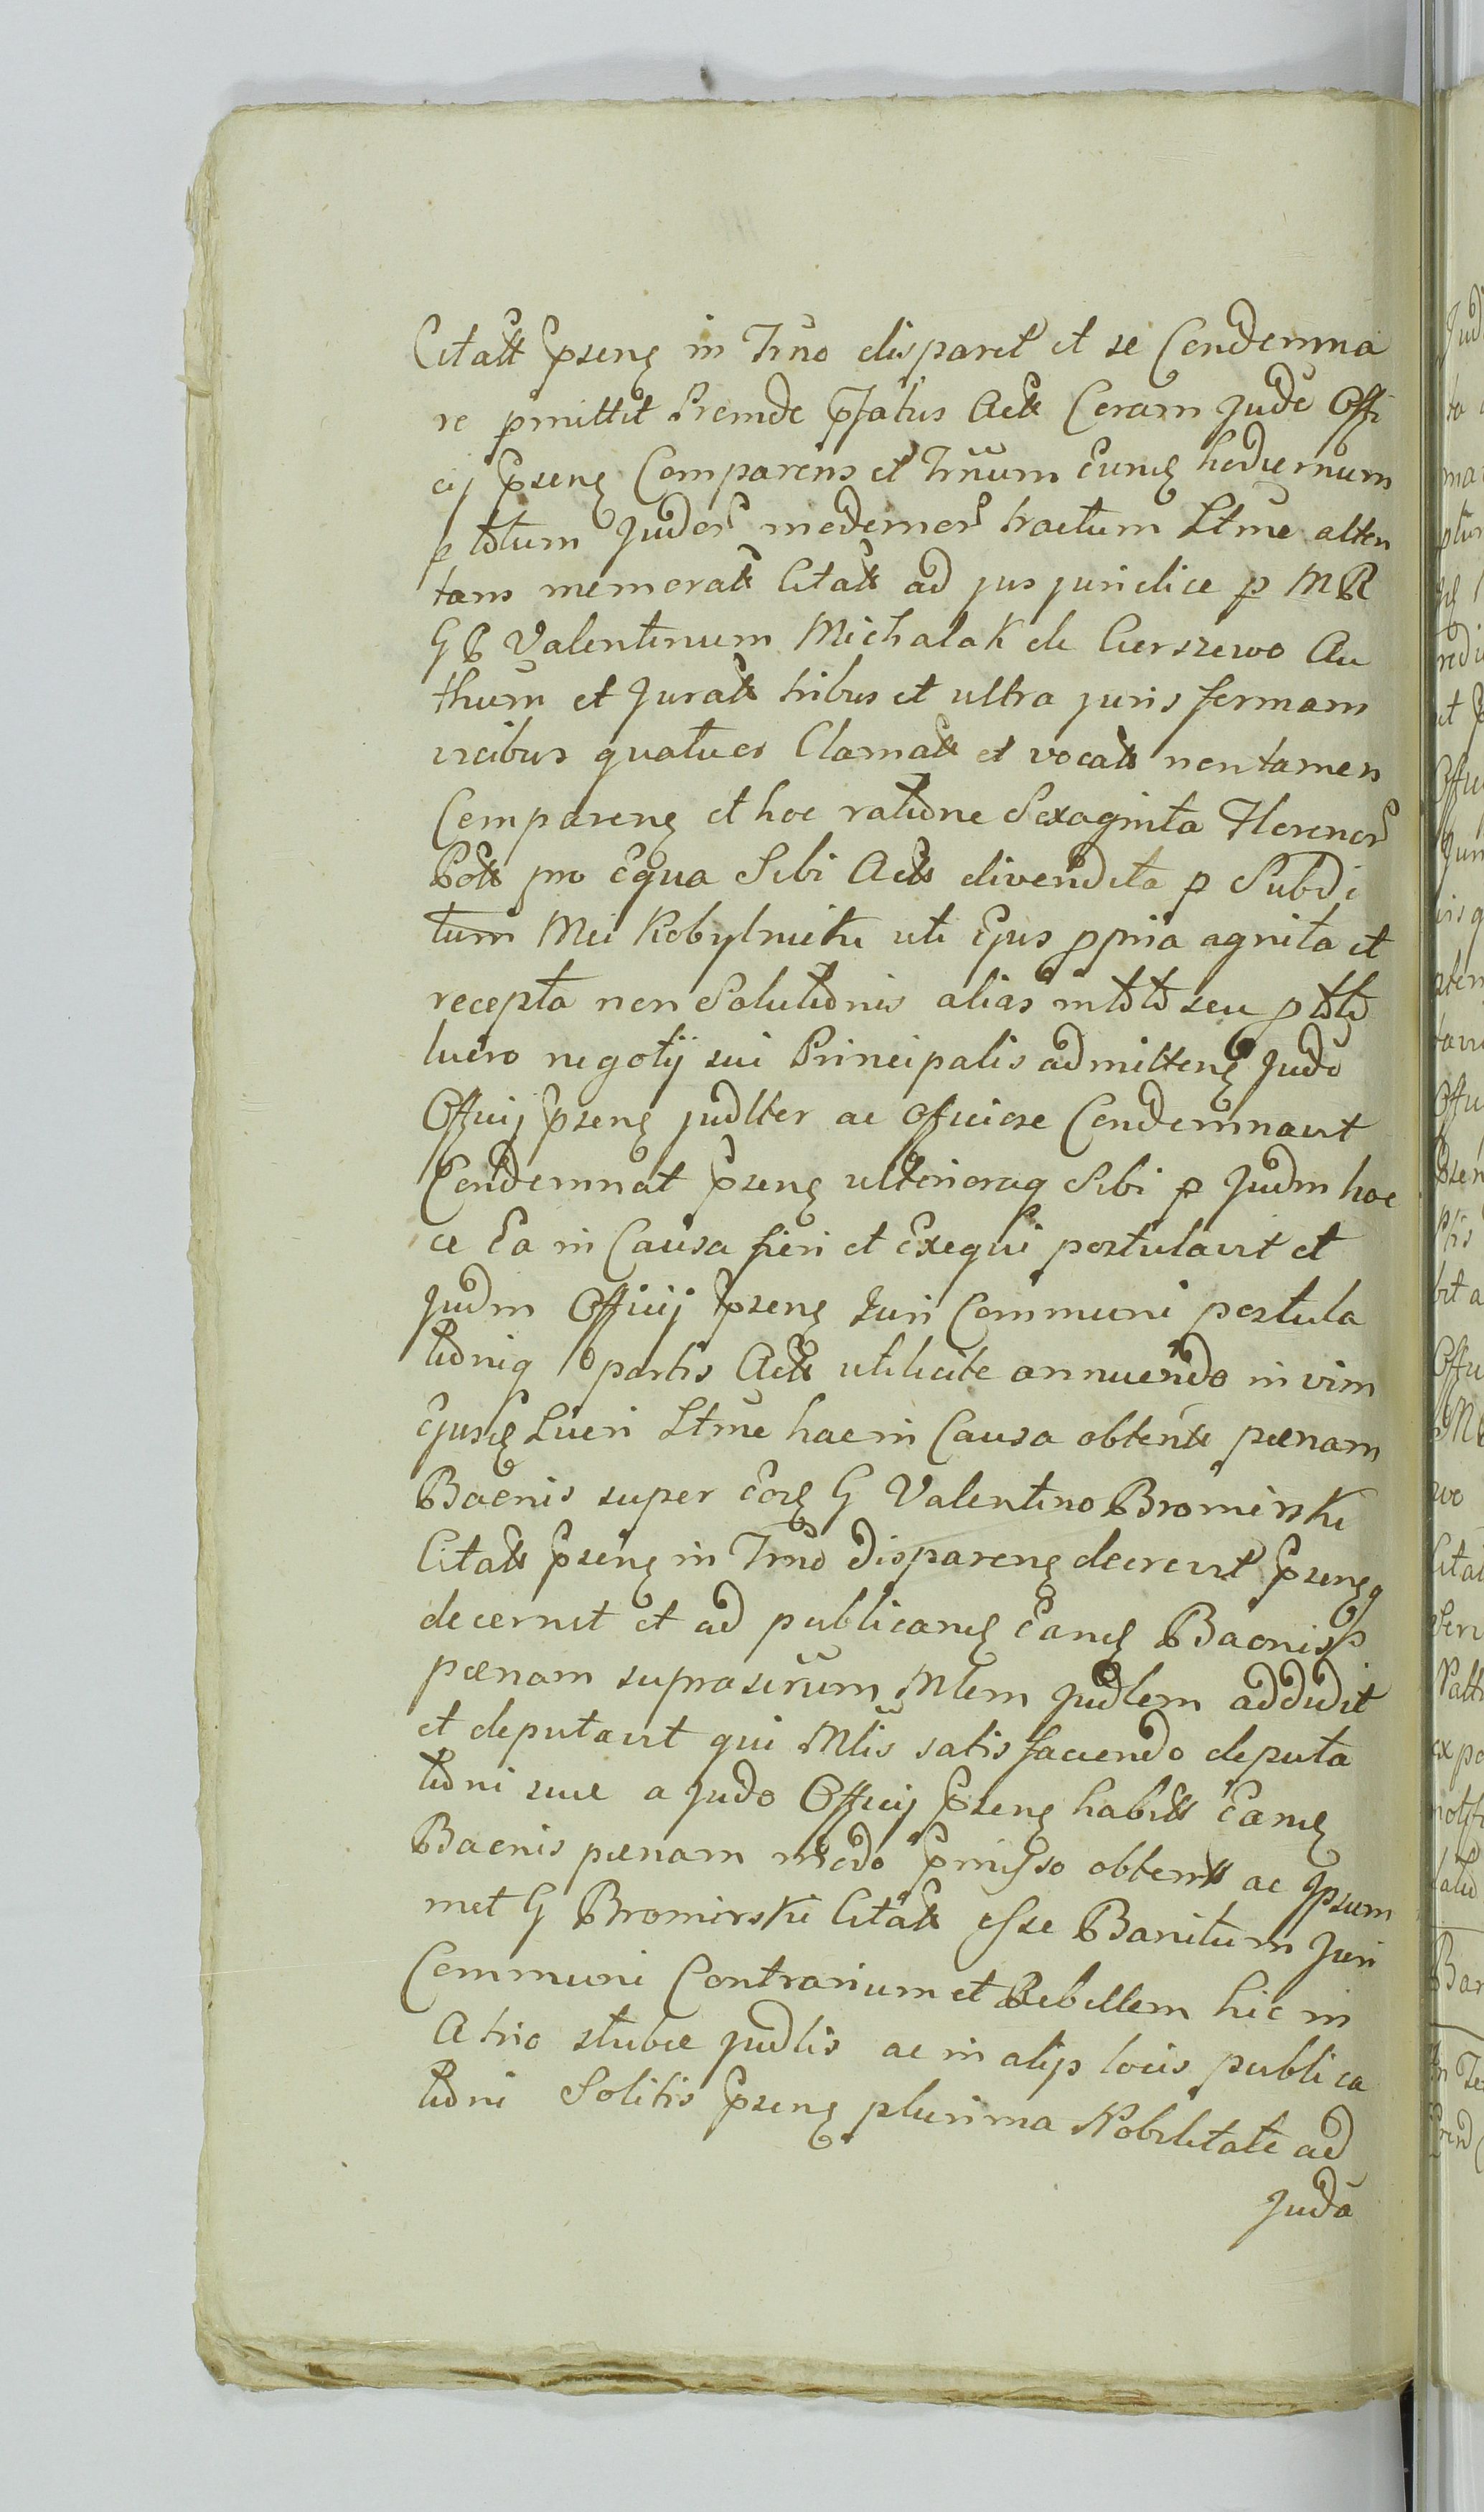 Citatt Pseng in Trno disparet et se Condemna
re pmittit Proinde Pfatus Actt Coram Judo Offi
cij Pseng Comparens et Trnum Eund hodiernum
p totum Judor modernor tractum Ltme atten
tans memoratt Citatt ad jus juridice p MR
GP Valentinum Michalak de Cierszewo Au
thum et Juratt tribus et ultra juris formam
vicibus quatuor Clamatt et vocatt non tamen
Compareng et hoc ratione Sexaginta Florenor
Poll pro Equa Sibi Actt divendita p Subdi
tum Mei Kobylnicki uti Ejus ppria agnita et
recepta non Solutionis alias in toto seu p toto
lucro negotij sui Principalis admitteng Judo
Officij Pseng judlter ac officiose Condemnavit
Condemnat Pseng ulterioraq Sibi p Judm hoc
ce Ea in Causa fieri et Exequi postulavit et
Judm Officij Pseng Juri Communi postula
tioniq partis Actt utilicite annuendo in vim
Ejusd Lucri Ltme hac in Causa obtentt pœnam
Baenis super Eod G Valentino Bromirski
Citatt Pseng in Trno dispareng decrevit Psengq
decernit et ad publicand Eand Baenis
pœnam suprascrum Mlem Judlem addidit
et deputavit qui Mlis satisfaciendo deputa
tioni suæ a Judo Officij Pseng habitt Eand
Baenis pœnam modo Pmisso obtentt ac Ipsum
met G Bromirski Citatt esse Banitum Juri
Communi Contrarium et Rebellem hic in
Atrio stubæ judlis ac in alijs locis publica
tioni Solitis Pseng plurima Nobilitate ad
Juda